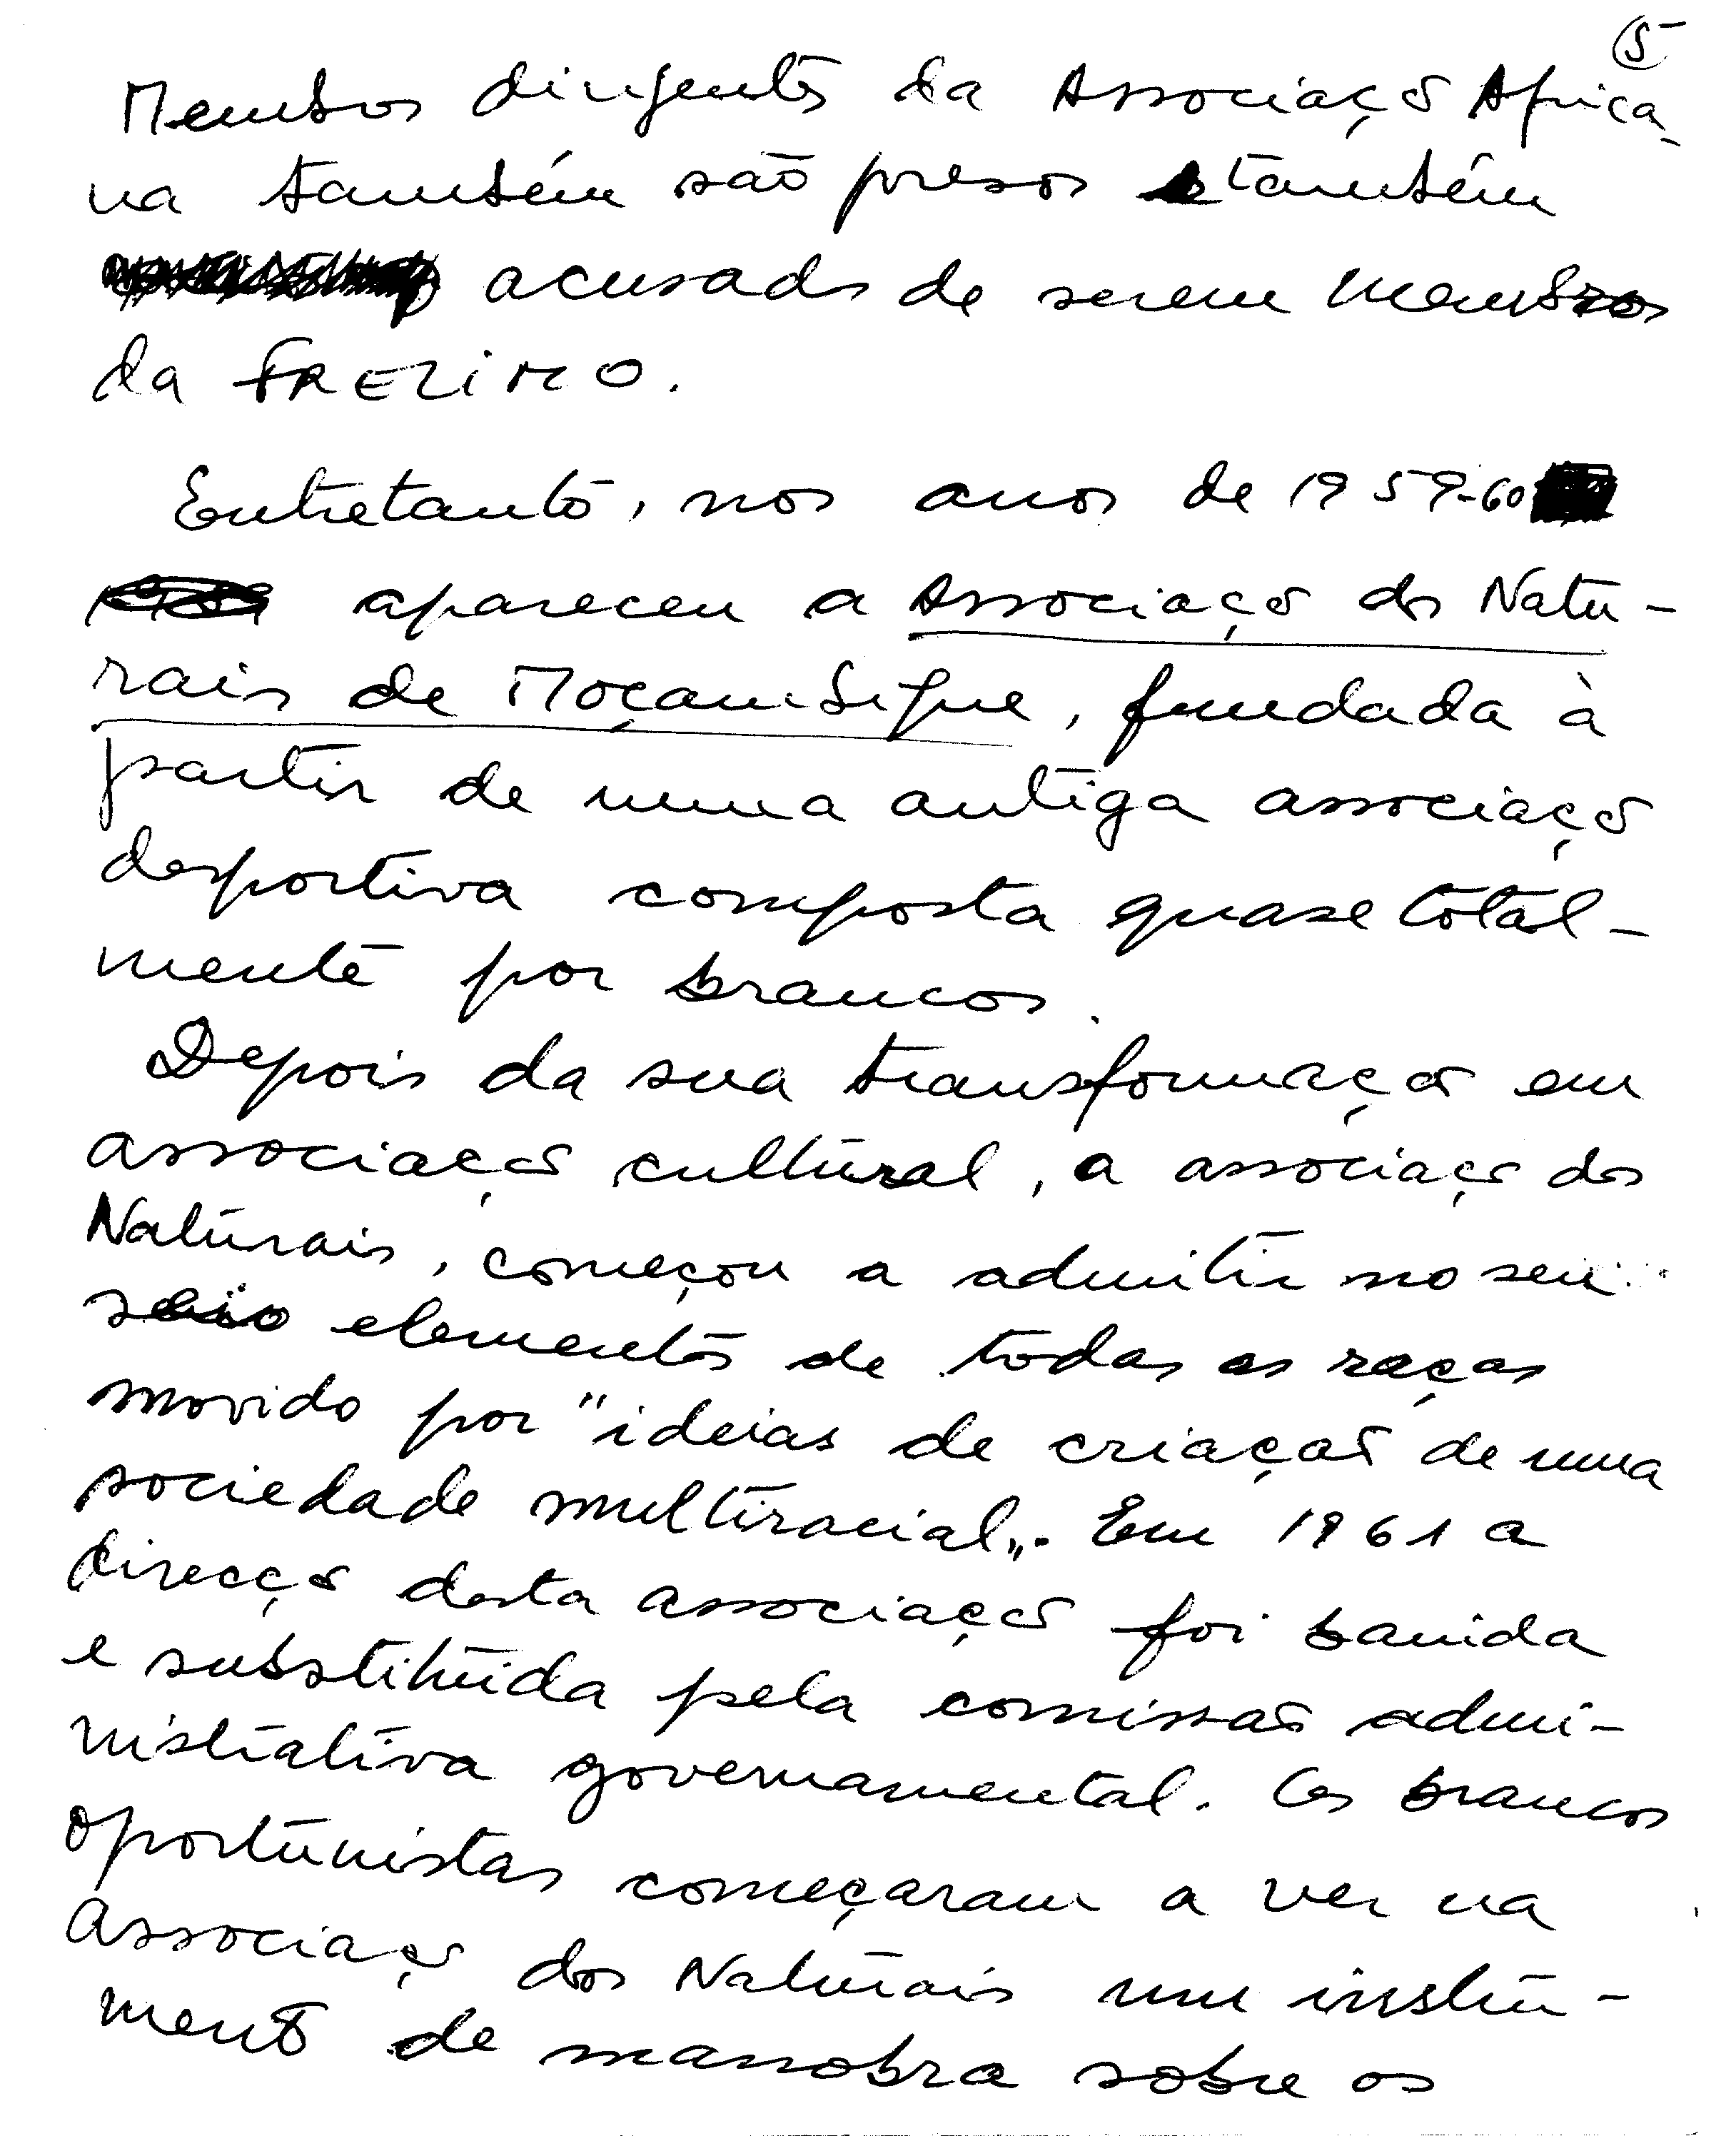 5
Membros dirigentes da Associação Africa-
na também são presos e também
acusados de serem membros
da FRELIMO.
Entretanto, nos anos de 1959-60
apareceu a Associação dos Natu-
rais de Moçambique, fundada à
partir de uma antiga associação
desportiva composta quase total-
mente por brancos.
Depois da sua transformação em
associação cultural, a associação dos
Naturais, começou a admitir no seu
seio elementos de todas as raças
movido por "ideias de criação de uma
sociedade multiracial". Em 1961 a
direcção desta associação foi banida
e substituida pela comissão admi-
nistrativa governamental. Os brancos
oportunistas começaram a ver na
Associação dos Naturais um instru-
mento de manobra sobre os